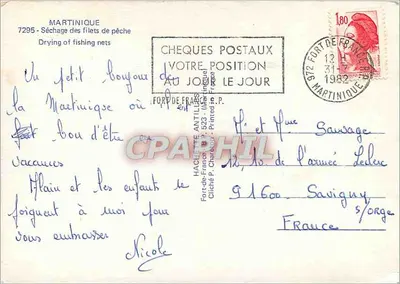 MARTINIQUE
7295 - Séchage des filets de pêche
Drying of fishing nets
CHEQUES POSTAUX
VOTRE POSITION
AU JOUR LE JOUR
FORT DE FRANCE R.P.
1,80
972 FORT DE FRANCE
12 H
31
1982
MARTINIQUE
Un petit bonjour de
la Martinique où il
fait bon d'être en
vacances
Alain et les enfants se
joignent à moi pour
vous embrasser
Nicole
HACHETTE ANTILLES
Fort-de-France 523 (Martinique)
Printed in France
CPARAMA
M. et Mme Sauvage
12, 10 de l'armée Leclerc
91600 Savigny
s/orge
France